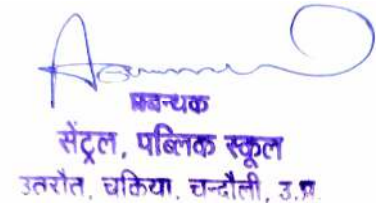 प्रबन्धक
सेंट्रल, पब्लिक स्कूल
उतरौत, चकिया, चन्दौली, उ.प्र.